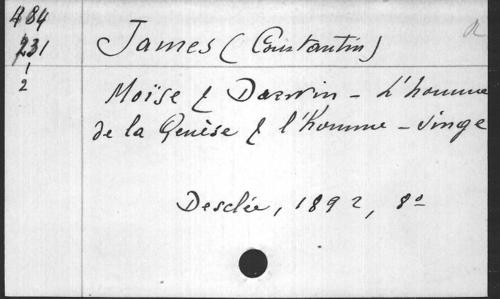 484
231
1
2
James (Constantin)
a
Moïse & Darwin – L'homme
de la Genèse & l'homme – singe
Desclée, 1892, 8º